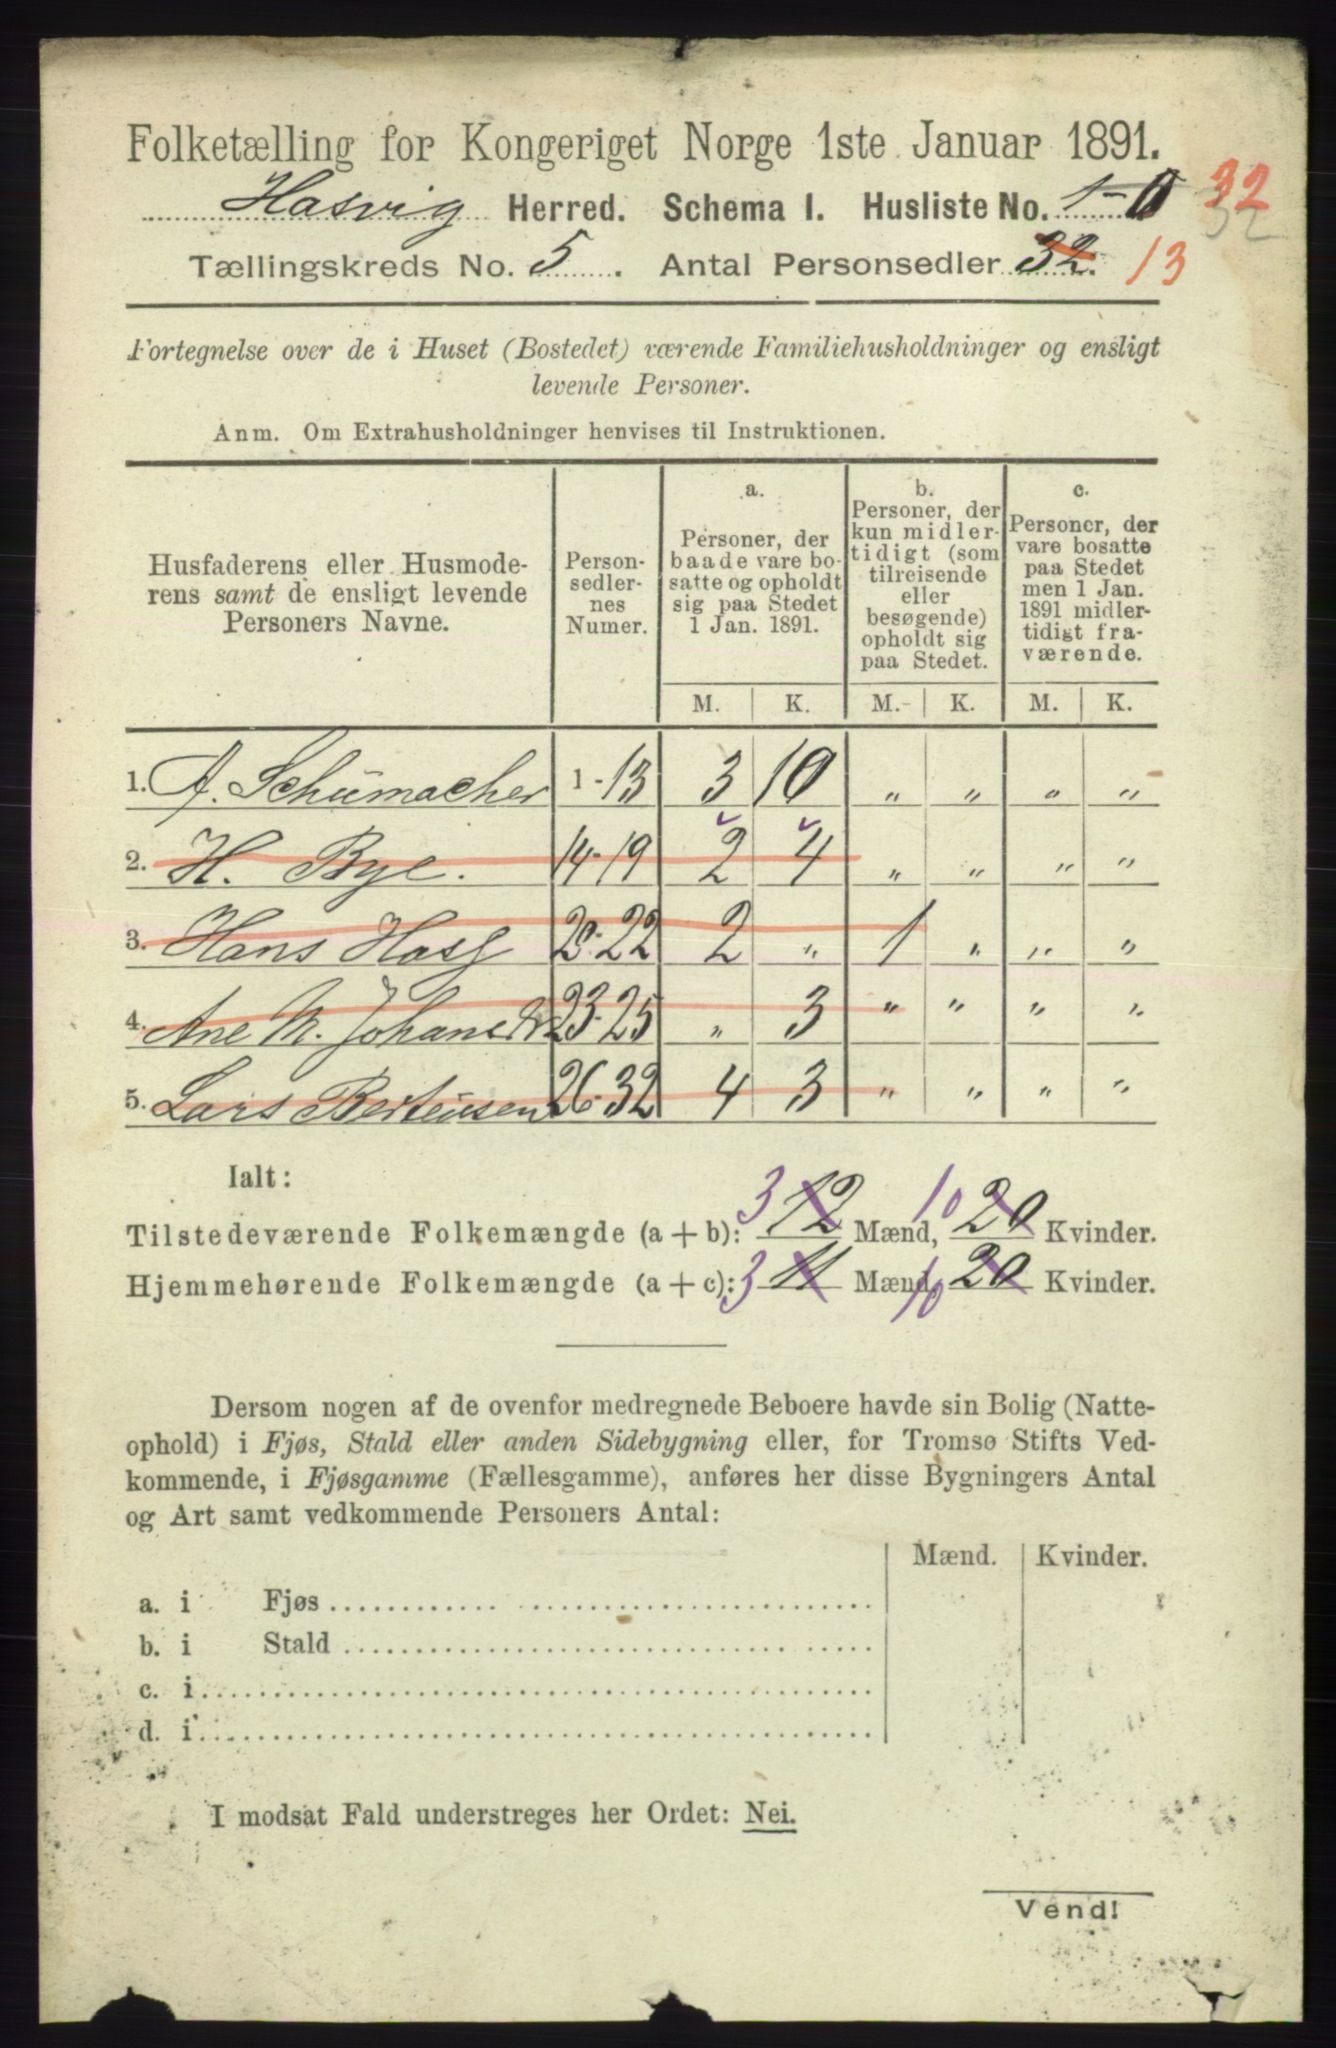 Folketælling for Kongeriget Norge 1ste Januar 1891.
Hasvig Herred. Schema I. Husliste No. 1 32
32
Tællingskreds No. 5. Antal Personsedler 32. 13
Fortegnelse over de i Huset (Bostedet) værende Familiehusholdninger og ensligt
levende Personer.
Anm. Om Extrahusholdninger henvises til Instruktionen.
Husfaderens eller Husmode-
rens samt de ensligt levende
Personers Navne.
Person-
sedler-
nes
Numer.
a.
Personer, der
baade vare bo-
satte og opholdt
sig paa Stedet
1 Jan. 1891.
b.
Personer, der
kun midler-
tidigt (som
tilreisende
eller
besøgende)
opholdt sig
paa Stedet.
c.
Personer, der
vare bosatte
paa Stedet
men 1 Jan.
1891 midler-
tidigt fra-
værende.
M. K. M. K. M. K.
1. A. Schümacher 1-13 3 10 " " " "
2. H. Bye. 14-19 2 4 " " " "
3. Hans Hasf 20-22 2 " 1 " " "
4. Ane M. Johansd 23-25 " 3 " " " "
5. Lars Berteüsen 26-32 4 3 " " " "
Ialt:
Tilstedeværende Folkemængde (a + b): 3 12 Mænd, 10 20 Kvinder.
Hjemmehørende Folkemængde (a + c): 3 11 Mænd 10 20 Kvinder.
Dersom nogen af de ovenfor medregnede Beboere havde sin Bolig (Natte-
ophold) i Fjøs, Stald eller anden Sidebygning eller, for Tromsø Stifts Ved-
kommende, i Fjøsgamme (Fællesgamme), anføres her disse Bygningers Antal
og Art samt vedkommende Personers Antal:
Mænd. Kvinder.
a. i Fjøs
b. i Stald
c. i
d. i
I modsat Fald understreges her Ordet: Nei.
Vend!